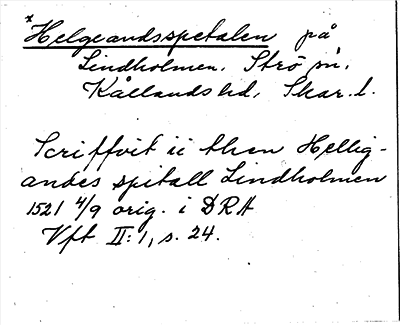 *Helgeandsspetalen på
Lindholmen. Strö sn.
Kållands hd, Skar. l.
Scriffvit ii then Hellig-
andes spitall Lindholmen
1521 4/9 orig. i DRA
Vft II:1, s. 24.